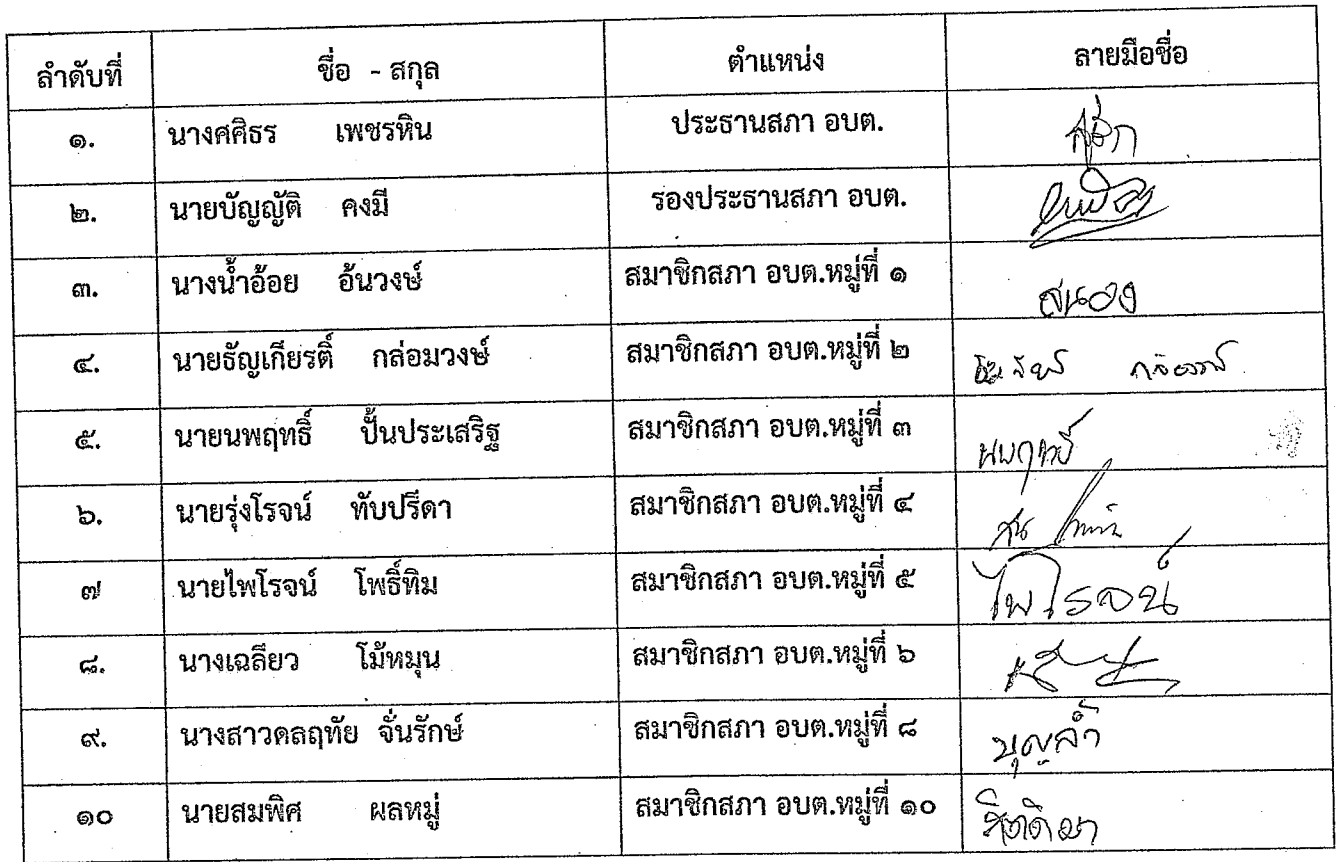 ลำดับที่ ชื่อ - สกุล ตำแหน่ง ลายมือชื่อ
๑. นางศศิธร เพชรหิน ประธานสภา อบต.
๒. นายบัญญัติ คงมี รองประธานสภา อบต.
๓. นางน้ำอ้อย อ้นวงษ์ สมาชิกสภา อบต.หมู่ที่ ๑ สนอง
๔. นายธัญเกียรติ์ กล่อมวงษ์ สมาชิกสภา อบต.หมู่ที่ ๒
๕. นายนพฤทธิ์ ปั้นประเสริฐ สมาชิกสภา อบต.หมู่ที่ ๓ นพฤทธิ์
๖. นายรุ่งโรจน์ ทับปรีดา สมาชิกสภา อบต.หมู่ที่ ๔
๗ นายไพโรจน์ โพธิ์ทิม สมาชิกสภา อบต.หมู่ที่ ๕ ไพโรจน์
๘. นางเฉลียว โม้หมุน สมาชิกสภา อบต.หมู่ที่ ๖
๙. นางสาวดลฤทัย จั่นรักษ์ สมาชิกสภา อบต.หมู่ที่ ๘ บุญล้ำ
๑๐ นายสมพิศ ผลหมู่ สมาชิกสภา อบต.หมู่ที่ ๑๐